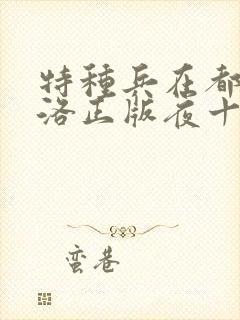 特種兵在都
洛正版夜十
蛮巷